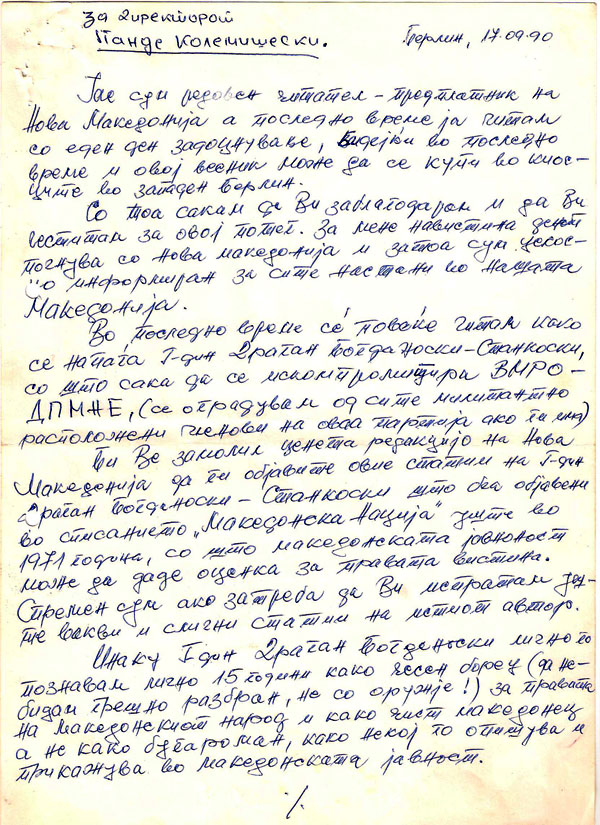 За директорот
Панде Колемишески.
Берлин, 17.09.90
Јас сум редовен читател – предплатник на
Нова Македонија а последно време ја читам
со еден ден задоцнување, бидејќи во последно
време и овој весник може да се купи во киос-
ците во западен Берлин.
Со тоа сакам да Ви заблагодарам и да Ви
честитам за овој потег. За мене навистина денот
почнува со Нова Македонија и затоа сум целос-
но информиран за сите настани во нашата
Македонија.
Во последно време сé повеќе читам како
се напаѓа Г-дин Драган Богдановски-Станкоски,
со што сака да се искомпромитира ВМРО-
ДПМНЕ, (се оградувам од сите милитантно
расположени членови на оваа партија ако ги има)
Ги Ве замолил ценета редакцијо на Нова
Македонија да ги објавите овие статии на Г-дин
Драган Богданоски – Станкоски што беа објавени
во списанието „Македонска Нација" уште во
1971 година, со што македонската јавност
може да даде оценка за правата вистина.
Спремен сум ако затреба да Ви испратам
те вакви и слични статии на истиот автор.
Инаку Г-дин Драган Богданоски лично го
познавам лично 15 години како чесен борец (да не-
бидам грешно разбран, не со оружје!) за правата
на Македонскиот народ и како чист македонец
а не како бугароман, како некој го опишува и
прикажува во македонската јавност.
./.